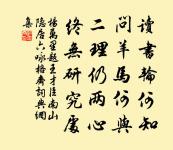 讀書輪何知
問羊馬何與
二理仍兩心
終無研究處
楊萬里題王才臣南山
隱居六詠格齋詞典網
集